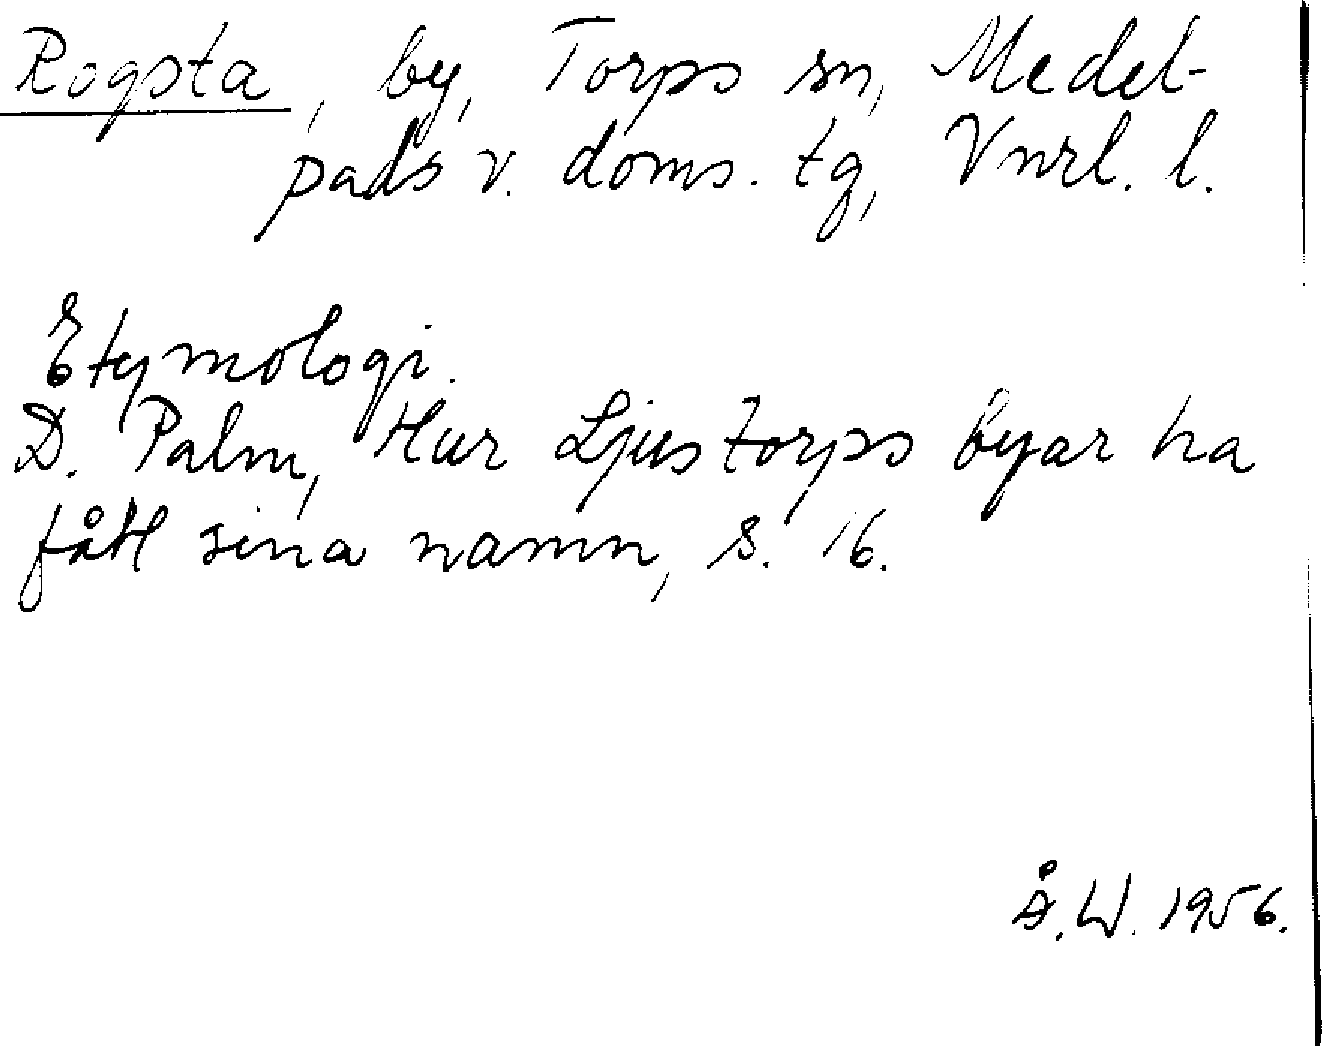 Rogsta, by, Torps sn, Medel-
pads v. doms. tg, Vnrl. l.
Etymologi.
D. Palm, Hur Ljustorps byar ha
fått sina namn, s. 16.
Å.W. 1956.